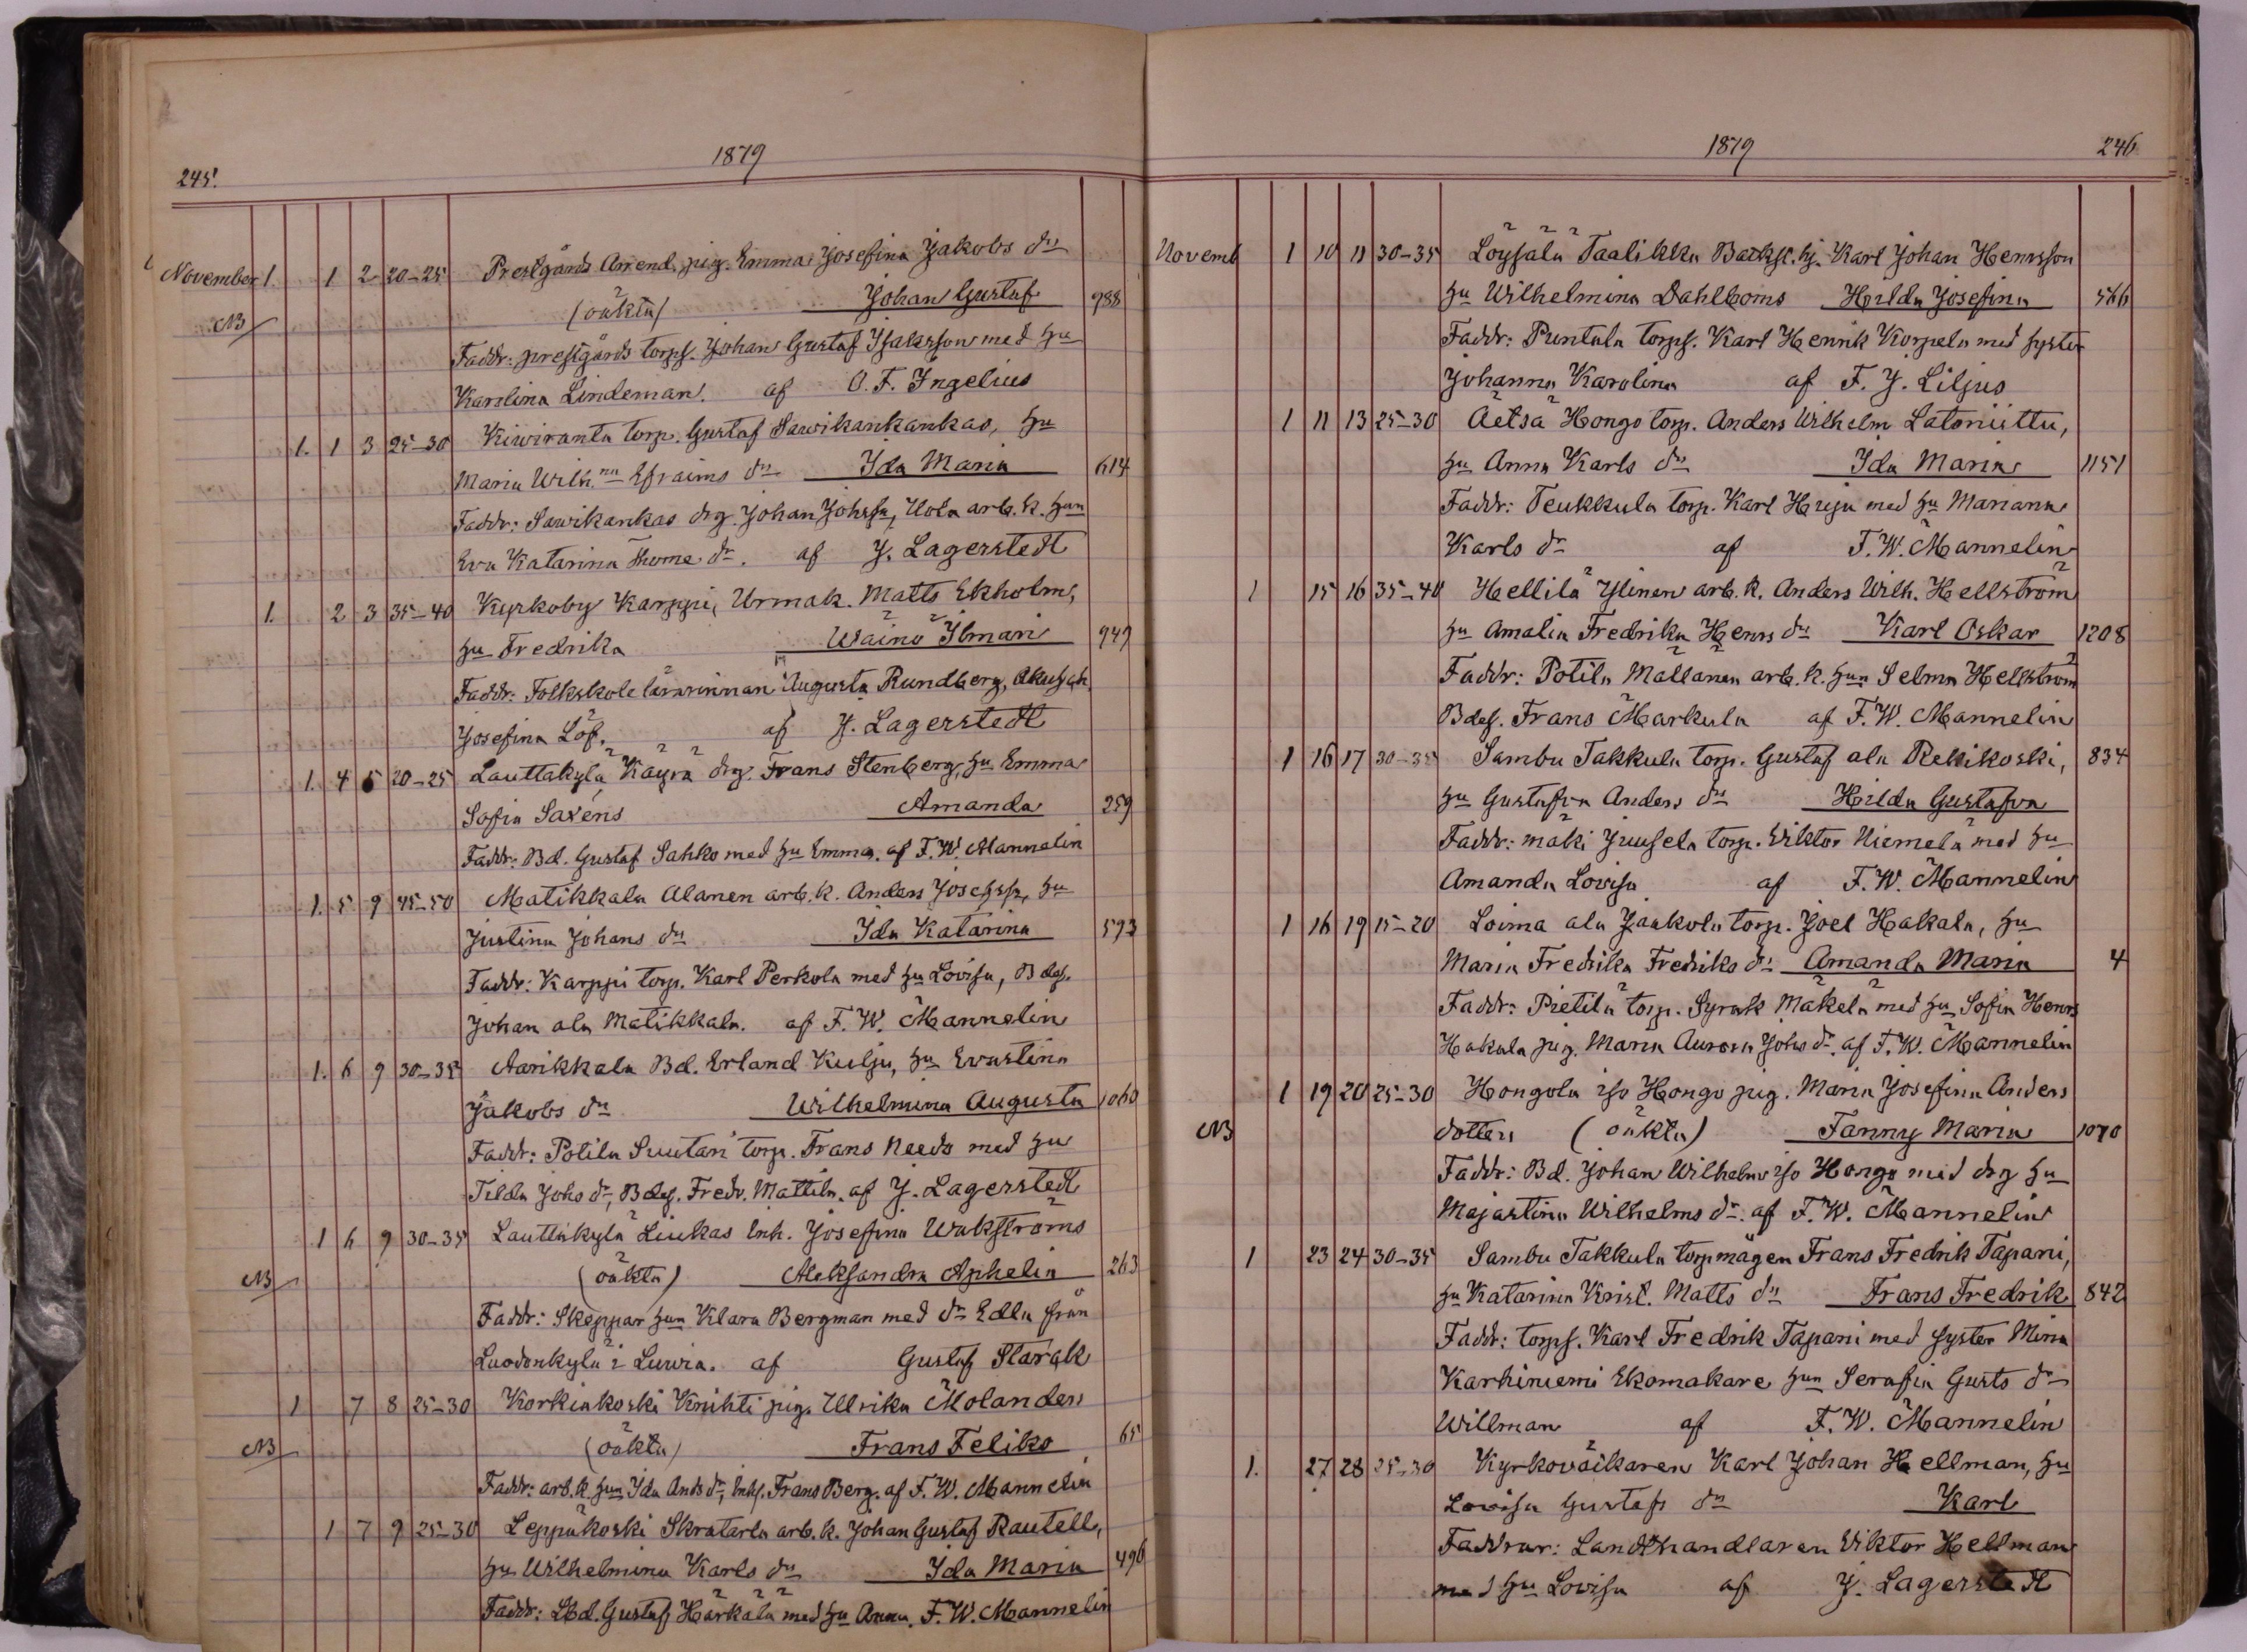 245.
1879
November 1. 1 2 20-25 Prestgårds Arrend. pig. Emma Josefina Jakobs dr
(oäkta) Johan Gustaf 988
NB
Faddr: prestgårds torps. Johan Gustaf Isaksson med hu
Karolina Lindeman. af O. F. Ingelius
1. 1 3 25-30 Kiwiranta torp. Gustaf Sawikankankas, hu
Maria Wilh.na Efraims dr Ida Maria 614
Faddr: Sawikankas drg. Johan Johssn, Uota arb. k. hun
Eva Katarina Thome dr. af J. Lagerstedt
1. 2 3 35-40 Kyrkoby Karppi, Urmak. Matts Ekholm,
hu Fredrika Wäinö Ilmari 949
Faddr: Folkskole lärarinnan Augusta Rundberg,
Josefina Löf. af J. Lagerstedt
1. 4 5 20-25 Lauttakylä Käyrä drg. Frans Stenberg, hu Emma
Sofia Saxéns Amanda 259
Faddr: Bd. Gustaf Sahko med hu Emma. af F. W. Mannelin
1. 5 9 45-50 Matikkala Alanen arb. k. Anders Josefssn, hu
Justina Johans dr Ida Katarina 593
Faddr: Karppi torp. Karl Perkola med hu Lovisa, Bdes.
Johan ala Matikkala. af F. W. Mannelin
1. 6 9 30-35 Aarikkala Bd. Erland Kulju, hu Evastina
Jakobs dr Wilhelmina Augusta 1060
Faddr: Potila Suutari torp. Frans Needo med hu
Tilda Johs dr, Bdes. Fredr. Mattila. af J. Lagerstedt
1 6 9 30-35 Lauttakylä Liukas Inh. Josefina Wakströms
NB (oäkta) Aleksandra Aphelia 263
Faddr: Skeppar hun Klara Bergman med dr Edla från
Luodonkylä i Luvia. af Gustaf Starck
1 7 8 25-30 Korkiakoski Knihti pig. Ulrika Molanders
NB (oäkta) Frans Feliks 65
Faddr: arb. k. hun Ida Ands dr, Inhs. Frans Berg. af F. W. Mannelin
1 7 9 25-30 Leppäkoski Skratarla arb. k. Johan Gustaf Rautell,
hu Wilhelmina Karls dr Ida Maria 496
Faddr: Bd. Gustaf Härkälä med hu Anna. F. W. Mannelin
1879
246
Novemb 1 10 11 30-35 Löysälä Taalikka Backst. hj. Karl Johan Henrsson
hu Wilhelmina Dahlboms Hilda Josefina 566
Faddr: Puntala torps. Karl Henrik Korpela med syster
Johanna Karolina af F. J. Liljus
1 11 13 25-30 Äetsä Hongo torp. Anders Wilhelm Latoniittu,
hu Anna Karls dr Ida Maria 1151
Faddr: Teukkula torp. Karl Harju med hu Marianna
Karls dr af F. W. Mannelin
1 15 16 35-40 Hellilä Ylinen arb. k. Anders Wilh. Hellström
hu Amalia Fredrika Henrs dr Karl Oskar 1208
Faddr: Potila Mällänen arb. k. hun Selma Hellström
Bdes. Frans Markula af F. W. Mannelin
1 16 17 30-35 Sambu Takkula torp. Gustaf ala Rekikoski, 834
hu Gustafva Anders dr Hilda Gustafva
Faddr: mäki Juusela torp. Viktor Niemelä med hu
Amanda Lovisa af F. W. Mannelin
1 16 19 15-20 Loima ala Jaakola torp. Joel Hakala, hu
Maria Fredrika Fredriks dr Amanda Maria 4
Faddr: Pietilä torp. Syrak Mäkelä med hu Sofia Henrs
Hakala pig. Maria Aurora Johs dr. af F. W. Mannelin
1 19 20 25-30 Hongola iso Hongo pig. Maria Josefina Anders
NB dotters (oäkta) Fanny Maria 1070
Faddr: Bd. Johan Wilhelm iso Hongo med drg hu
Majastina Wilhelms dr. af F. W. Mannelin
1 23 24 30-35 Sambu Takkula torpmågen Frans Fredrik Tapani,
hu Katarina Krist. Matts dr Frans Fredrik 842
Faddr: torps. Karl Fredrik Tapani med syster Mina
Karhiniemi Skomakare hun Serafia Gusts dr
Willman af F. W. Mannelin
1. 27 28 25-30 Kyrkoväikaren Karl Johan Hellman, hu
Lovisa Gustafs dr Karl
Faddrar: Landthandlaren Viktor Hellman
med hu Lovisa af J. Lagerstedt